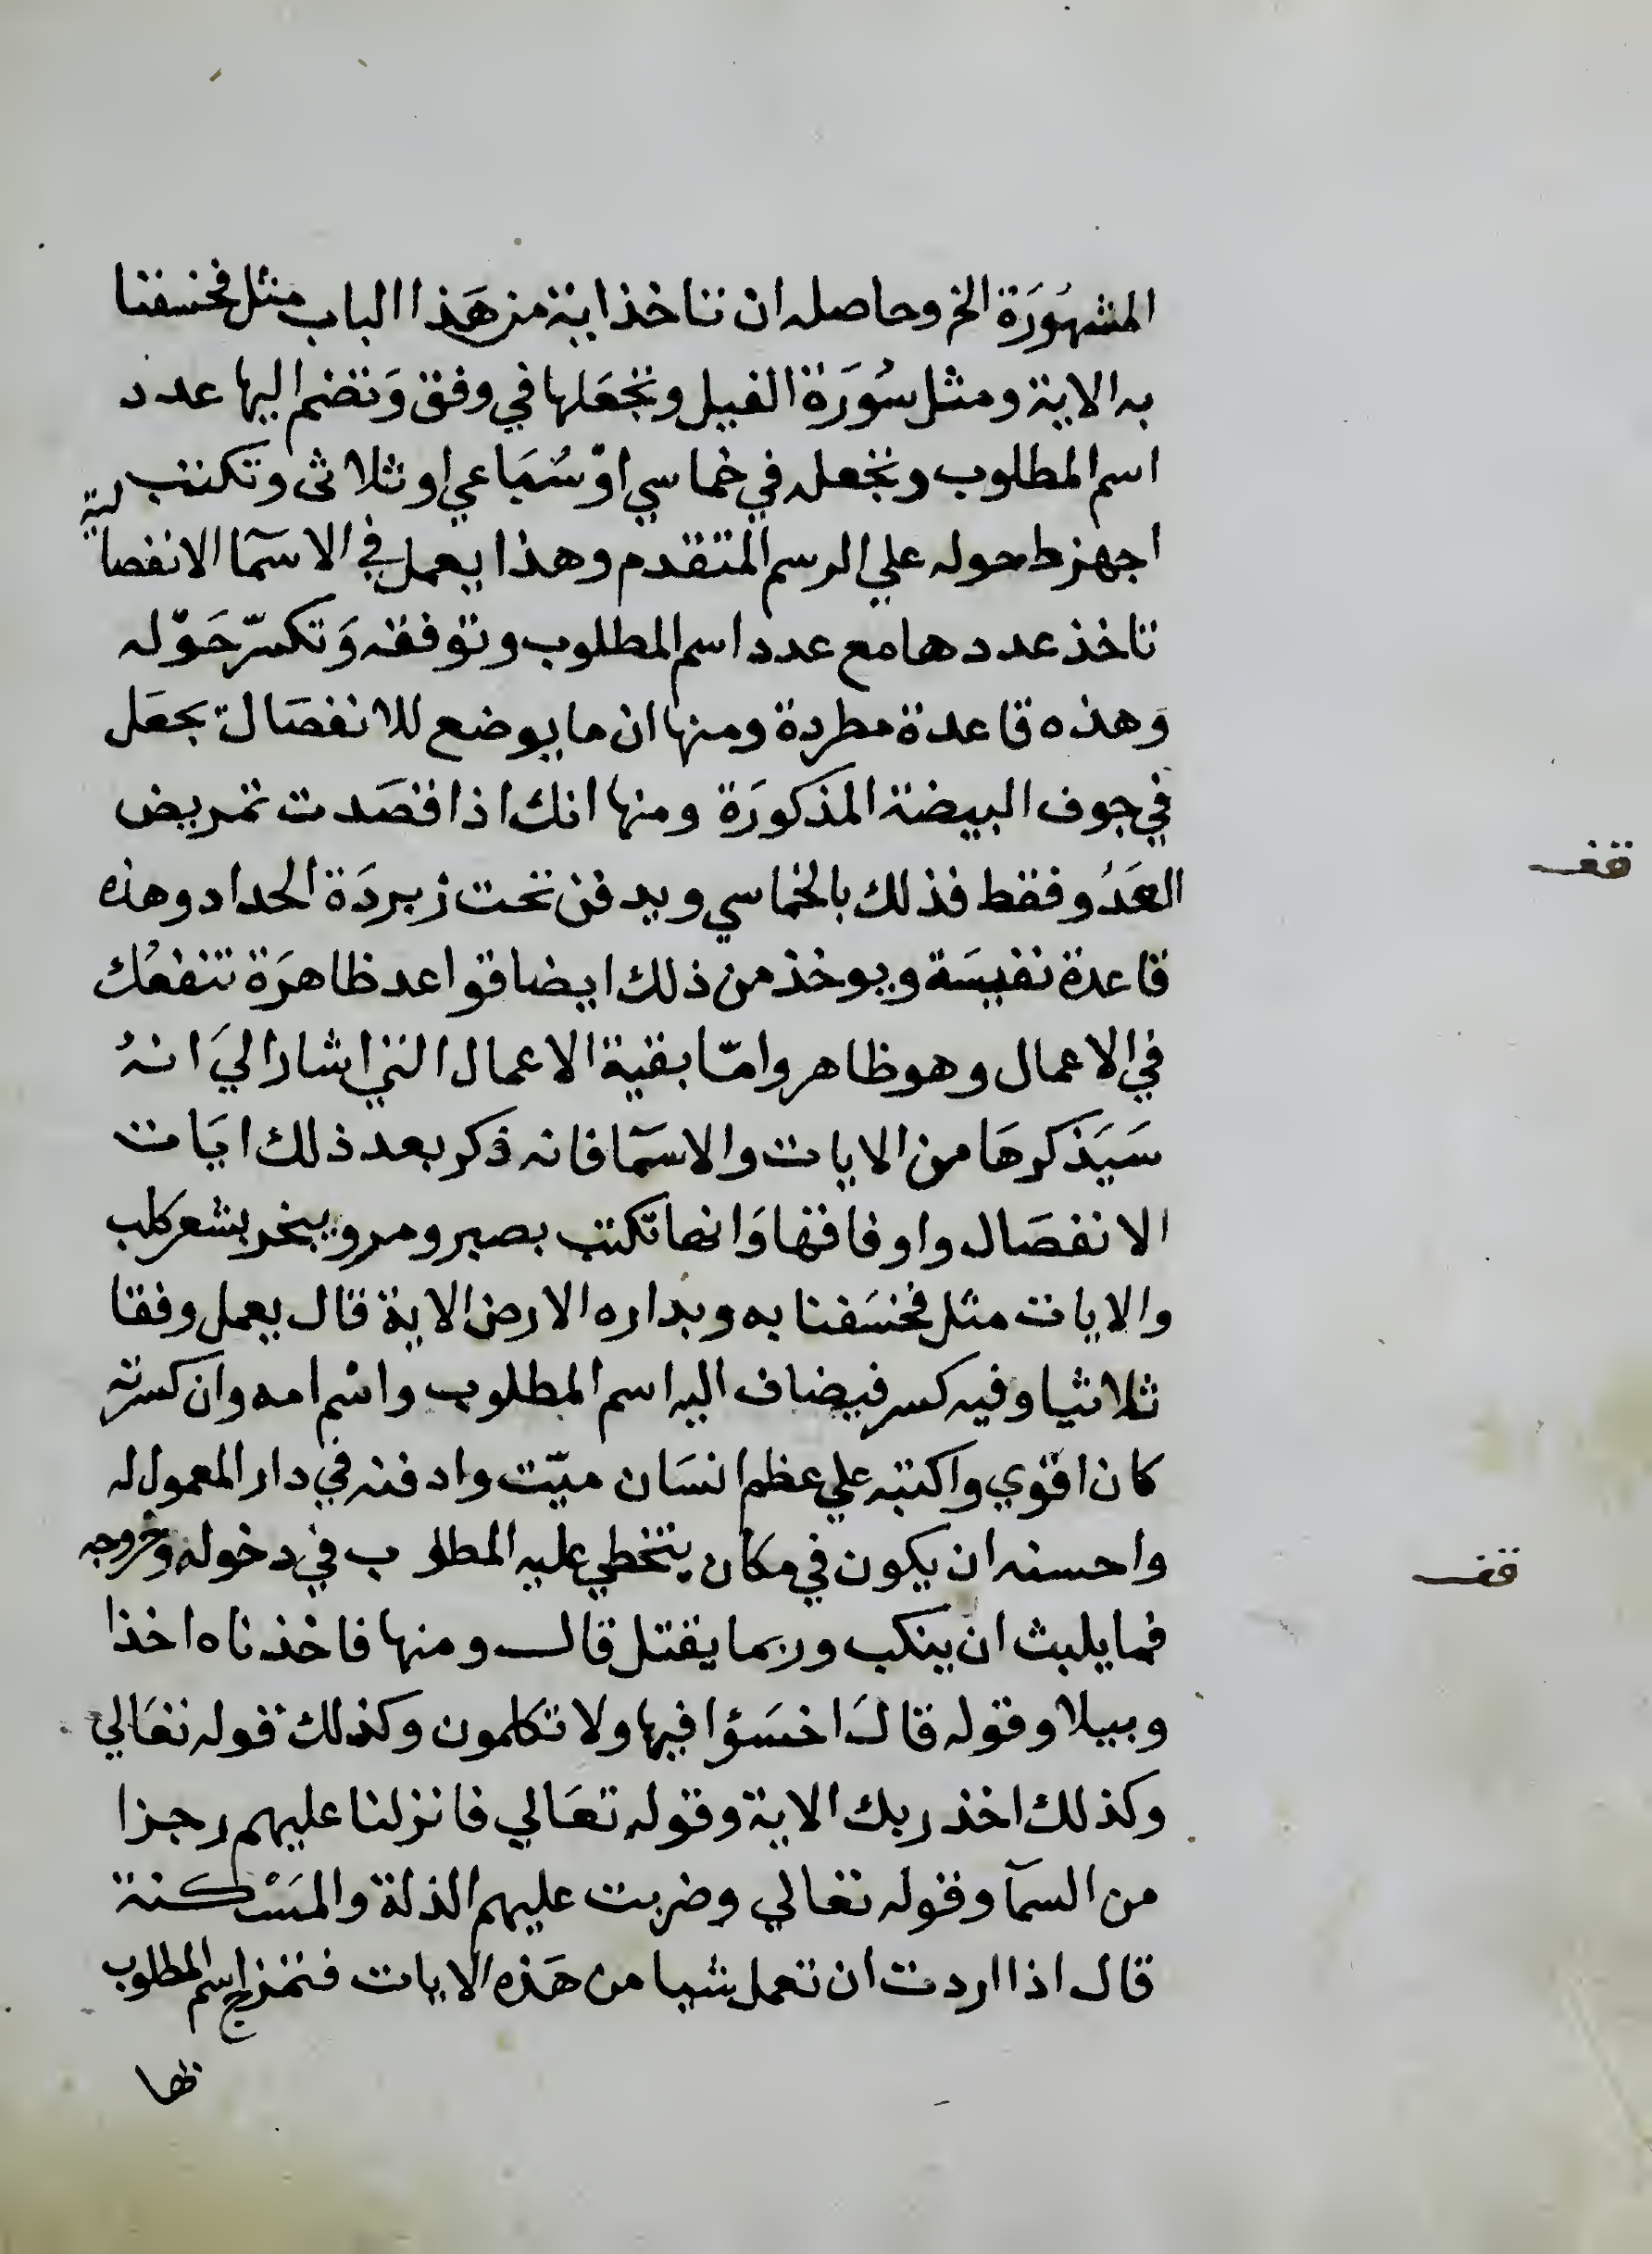 المشهُورَة الخ وحاصله ان تاخذ اية من هَذا الباب مثل فخسفنا
به الاية ومثل سُورَة الفيل وتجعَلها في وفق وَتضم اليها عدد
اسم المطلوب وتجعله في خماسي اوْ سُبَاعي او ثلاثى وتكتب
اجهزط حوله علي الرسم المتقدم وهذا يعمل في الاسمآ الانفصالية
تاخذ عددها مع عدد اسم المطلوب وتوفقه وَتكسّر حَوْله
وَهذه قاعدة مطردة ومنها ان ما يوضع للانفصَال يجعَل
في جوف البيضة المذكورَة ومنها انك اذا قصَدت تمريض
العَدُو فقط فذلك بالخماسي ويدفن تحت زبردَة الحداد وهذه
قاعدة نفيسَة ويوخذ من ذلك ايضا قواعد ظاهرَة تنفعُك
في الاعمال وهو ظاهر وامّا بقية الاعمال التي اشار اليَ انهُ
سَيَذكرهَا من الايات والاسمآ فانه ذكر بعد ذلك ايَات
الانفصَال واوفاقها وَانها تكتب بصبر ومر ويبخر بشعر كلب
والايات مثل فخسَفنا به وبداره الارض الاية قال يعمل وفقا
ثلاثيا وفيه كسر فيضاف اليه اسم المطلوب واسْم امه وان كسرته
كان اقوي واكتبه علي عظم انسَان ميّت وادفنه في دار المعمول له
واحسنه ان يكون في مكان يتخطي عليه المطلوب في دخوله وخروجه
فما يلبث ان ينكب وربما يقتل قال ومنها فاخذناه اخذا
وبيلا وقوله قالَ اخسَؤا فيها ولا تكلمون وكذلك قوله تعَالي
وكذلك اخذ ربك الاية وقوله تعَالي فانزلنا عليهم رجزا
من السمآ وقوله تعالي وضربت عليهم الذلة والمَسْكنة
قال اذا اردت ان تعمل شيا من هَذه الايات فتمزج اسم المطلوب
بها
قف
قف